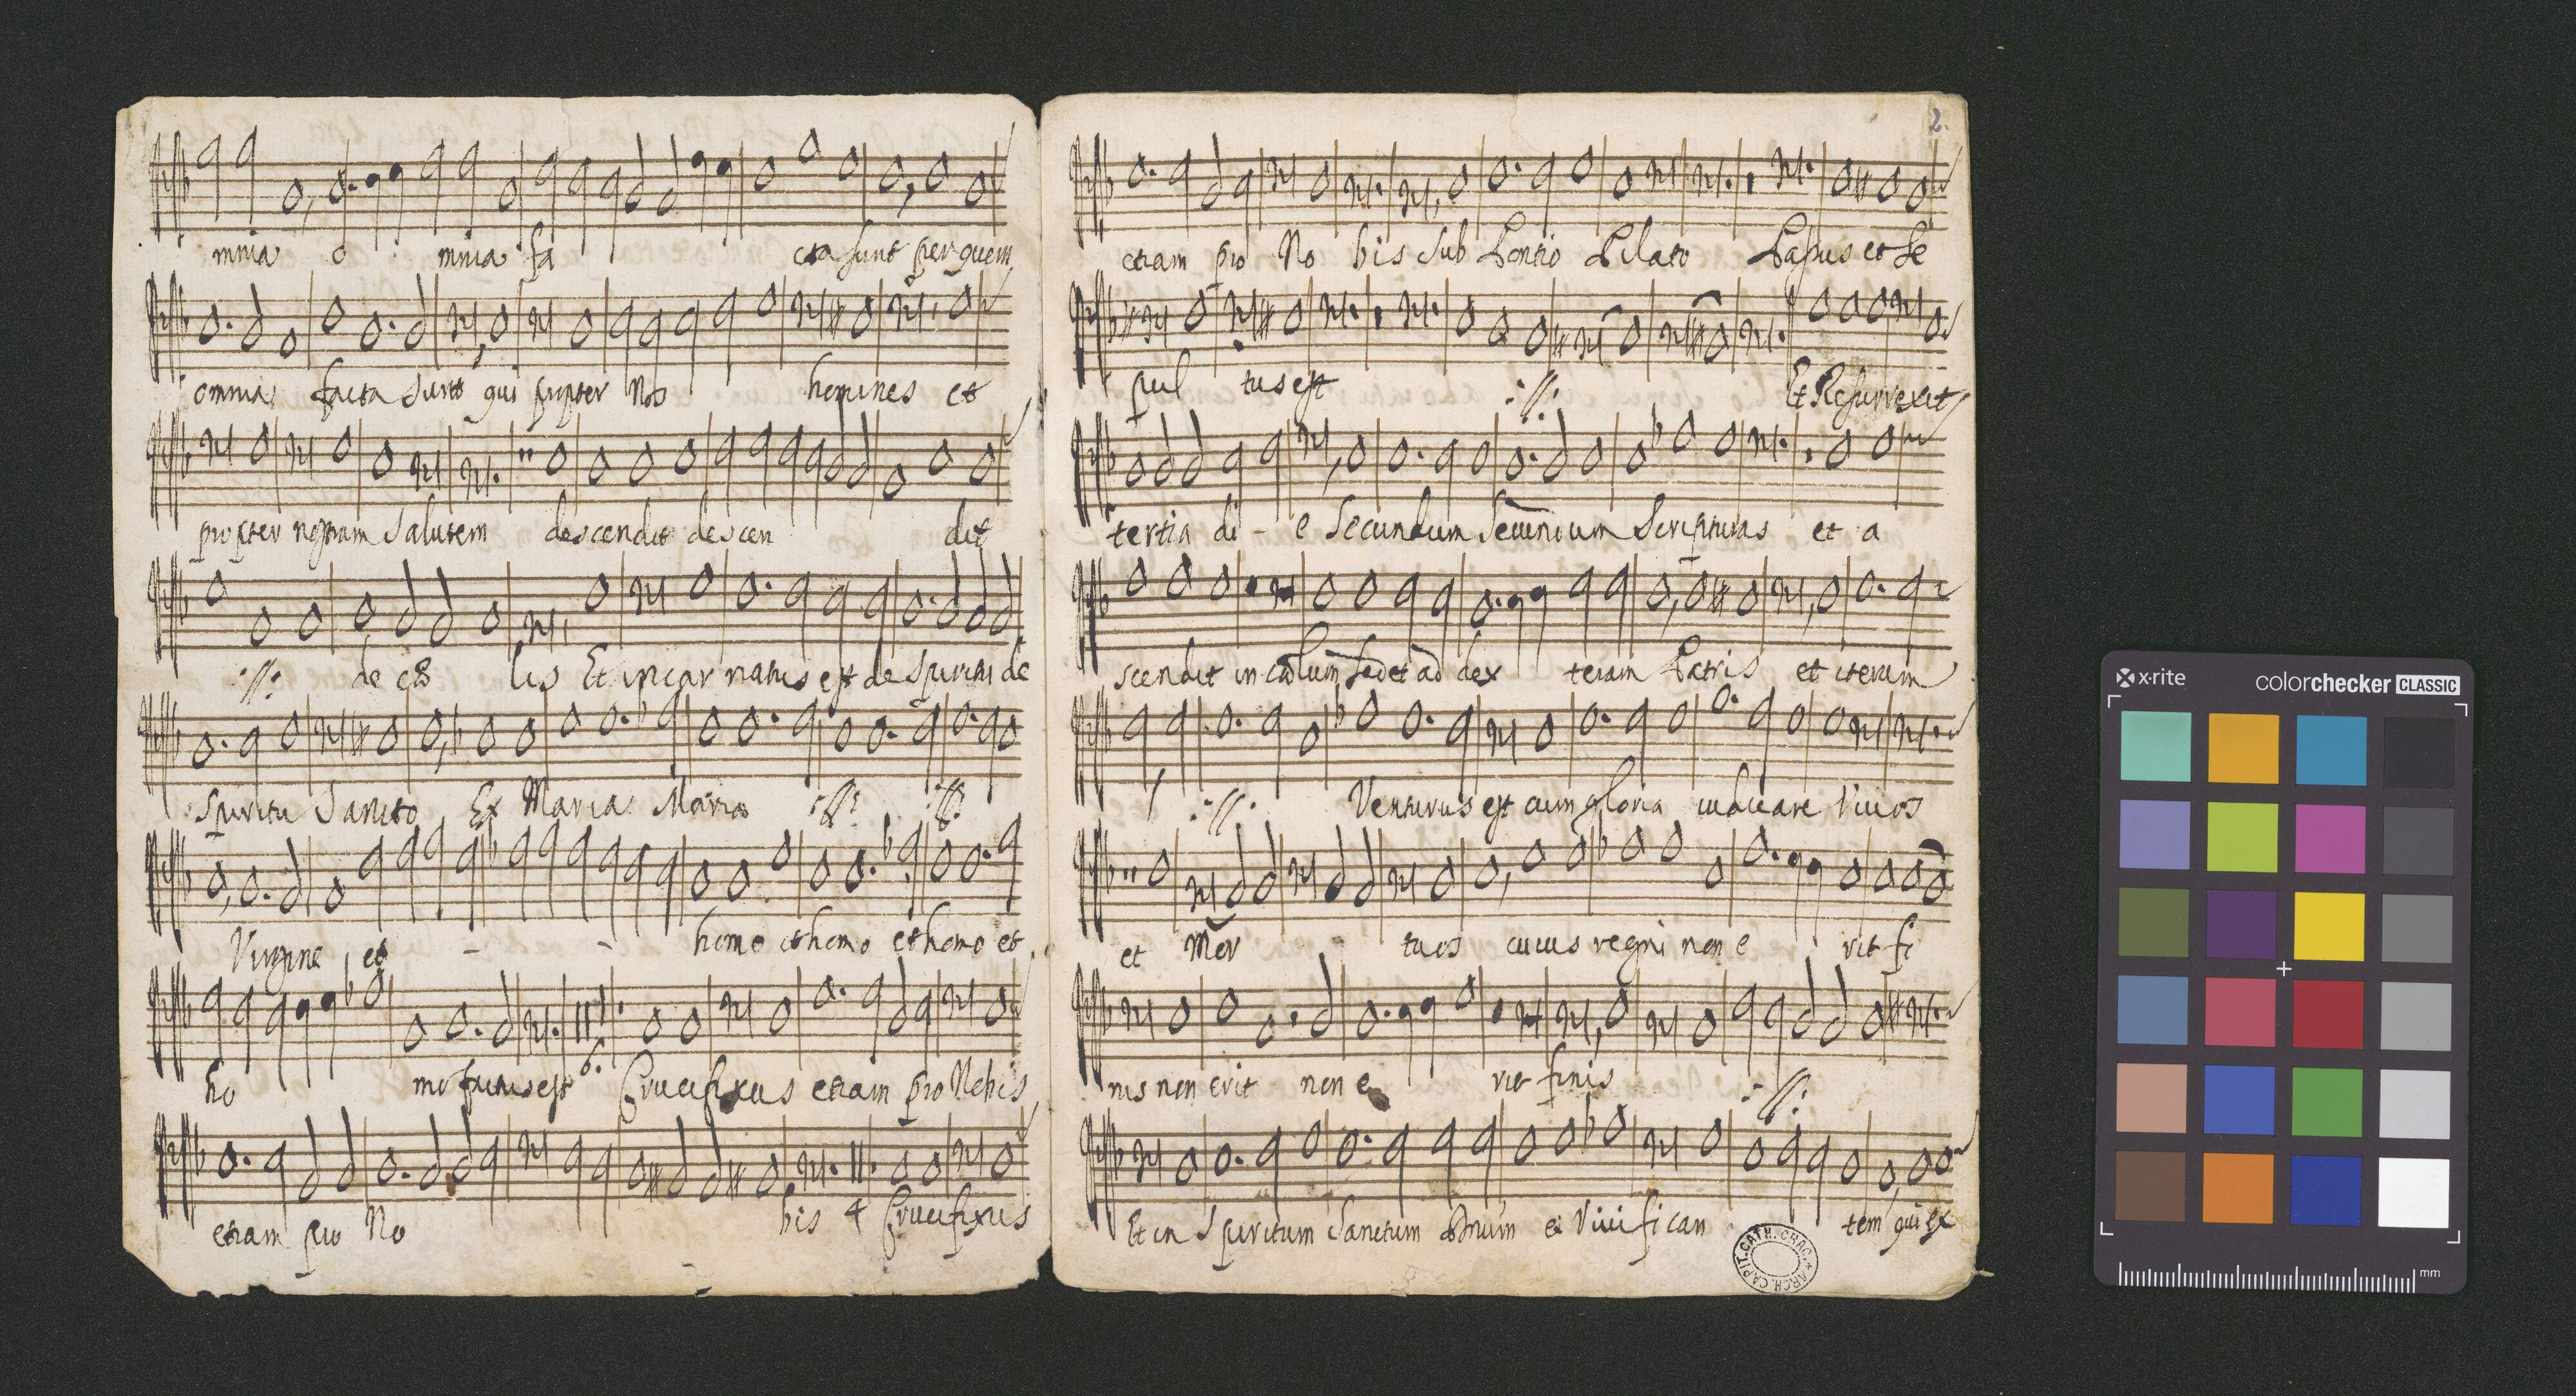 mnia o mnia fa cta sunt per quem
omnia facta sunt qui propter Nos homines et
propter nostram salutem descendit descen dit
://: de cæ lis Et incar natus est de Spiritu de
Spiritu Sancto Ex Maria Maria ://: ://:
Virgine et - - homo et homo et homo et
ho mo factus est 6. Crucifixus etiam pro Nobis
etiam pro No bis 4 Crucifixus
2.
etiam pro No bis sub Pontio Pilato Passus et Se
pul tus est ://: Et Resurrexit
tertia di - e Secundum Secundum Scripturas et a
scendit in cœlum sedet ad dex teram Patris et iterum
://: Venturus est cum gloria iudicare Vivos
et Mor tuos cuius regni non e rit fi
nis non erit non e rit finis ://:
Et in Spiritum Sanctum Dnum et Vivi fi can tem qui ex
ARCH. CAPIT. CATH. CRAC.
x·rite colorchecker CLASSIC
mm